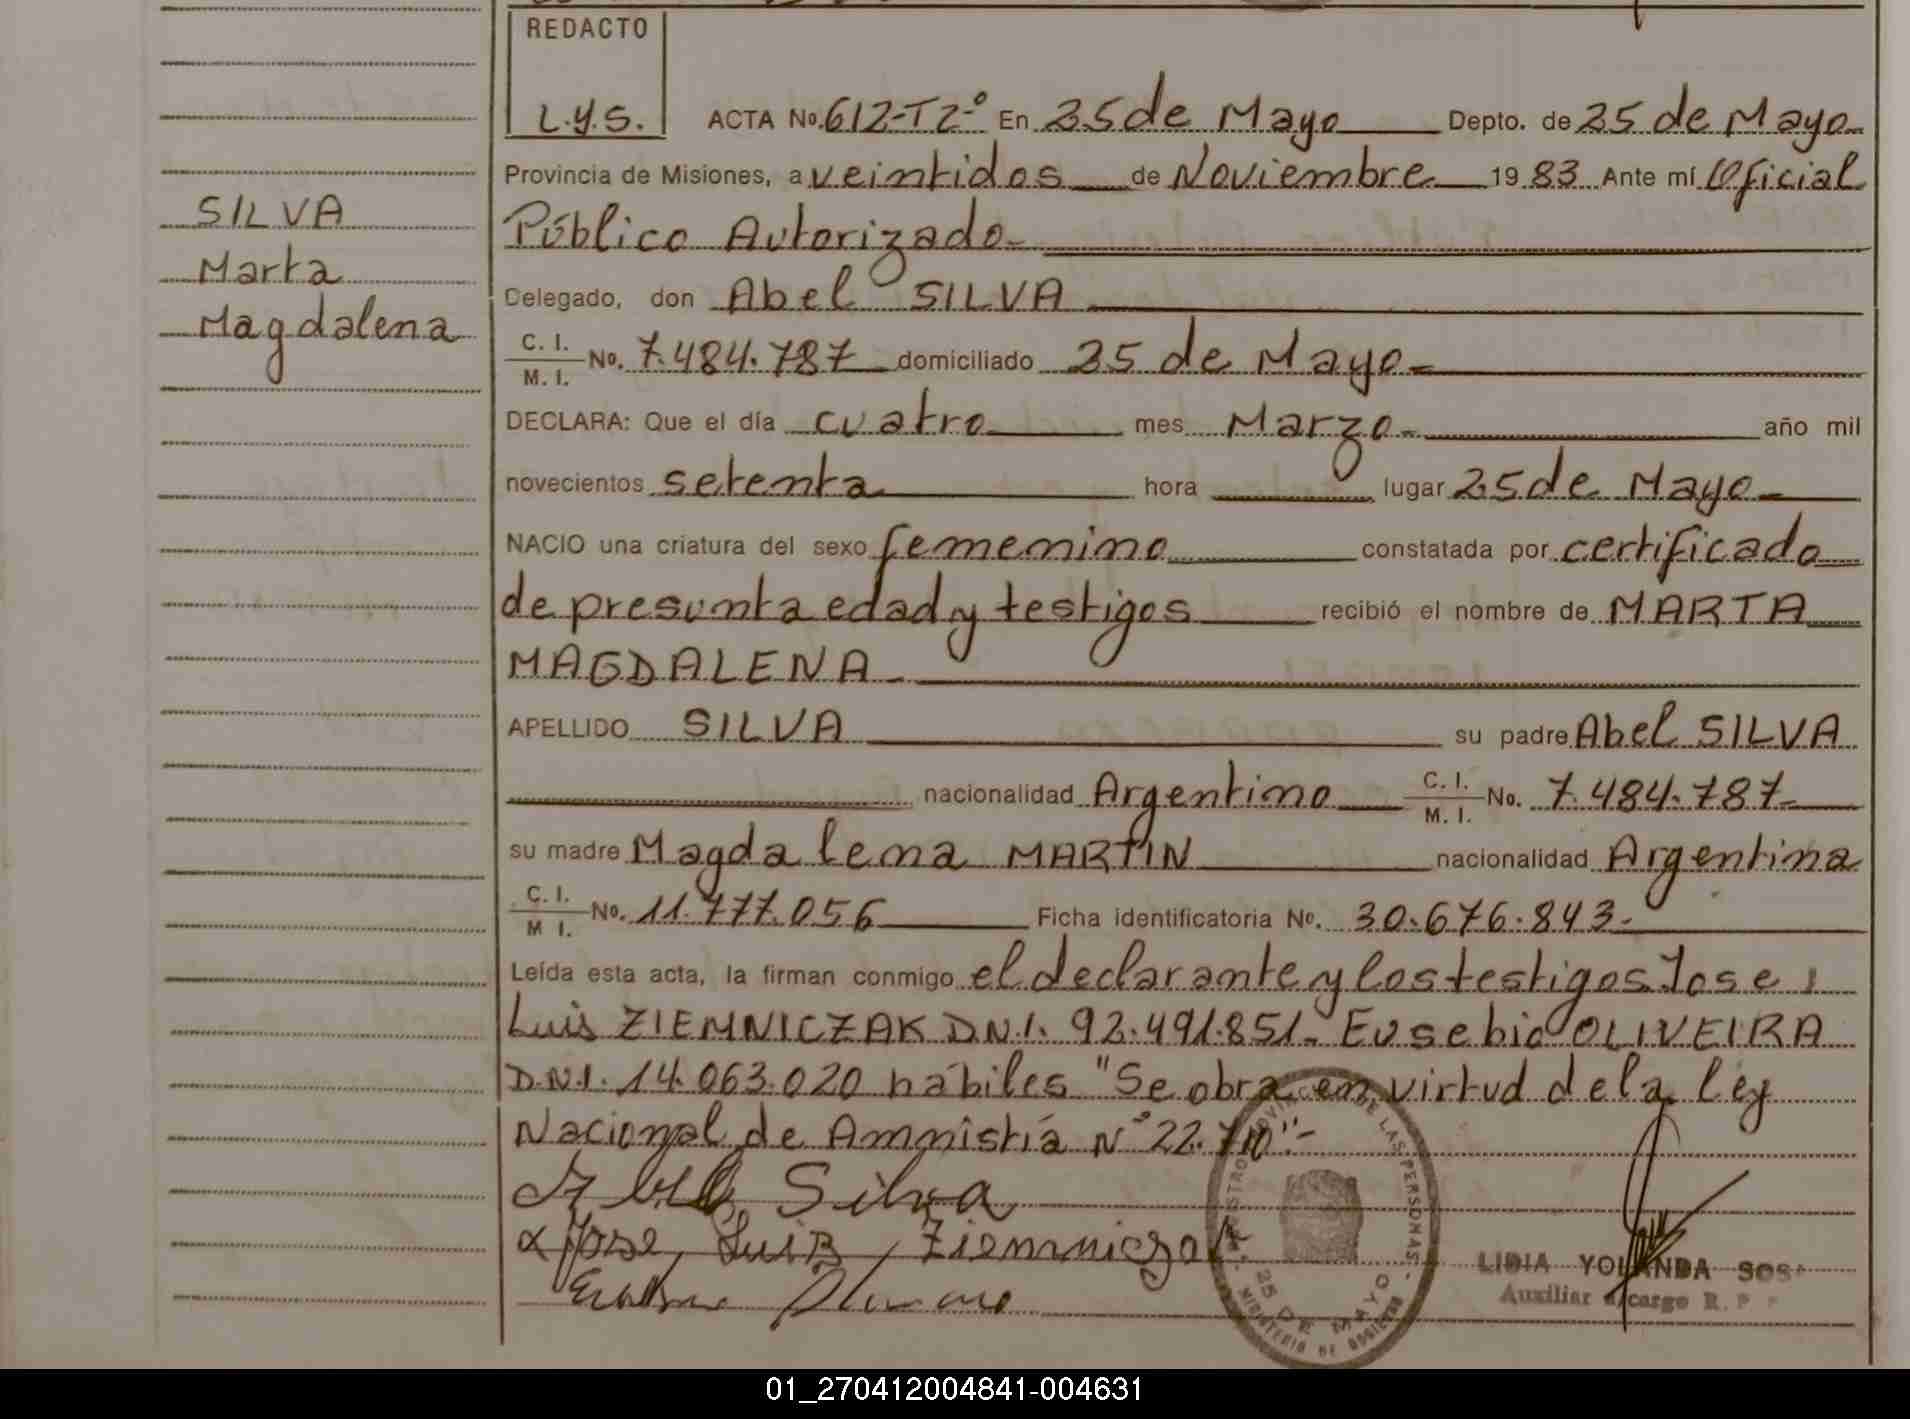 REDACTO
L.y.S.
ACTA No. 612-T2º En 25 de Mayo Depto. de 25 de Mayo
Provincia de Misiones, a veintidos de Noviembre 19 83 Ante mí Oficial
Público Autorizado
Delegado, don Abel SILVA
C. I.
M. I. No. 7.484.787 domiciliado 25 de Mayo
DECLARA: Que el día cuatro mes Marzo año mil
novecientos setenta hora lugar 25 de Mayo
NACIO una criatura del sexo femenino constatada por certificado
de presunta edad y testigos recibió el nombre de MARTA
MAGDALENA
APELLIDO SILVA su padre Abel SILVA
nacionalidad Argentino C. I.
M. I. No. 7.484.787
su madre Magdalena MARTIN nacionalidad Argentina
C. I.
M I. No. 11.777.056 Ficha identificatoria No. 30.676.843.
Leída esta acta, la firman conmigo el declarante y los testigos Jose
Luis ZIEMNICZAK D.N.I. 92.491.851- Eusebio OLIVEIRA
D.N.I. 14.063.020 habiles "Se obra en virtud de la ley
Nacional de Amnistía Nº 22.710"-
Abel Silva
Jose Luis Ziemniczak
SILVA
Marta
Magdalena
25 DE MAYO
LIDIA YOLANDA SOSA
Auxiliar a/cargo R. P.
01_270412004841-004631